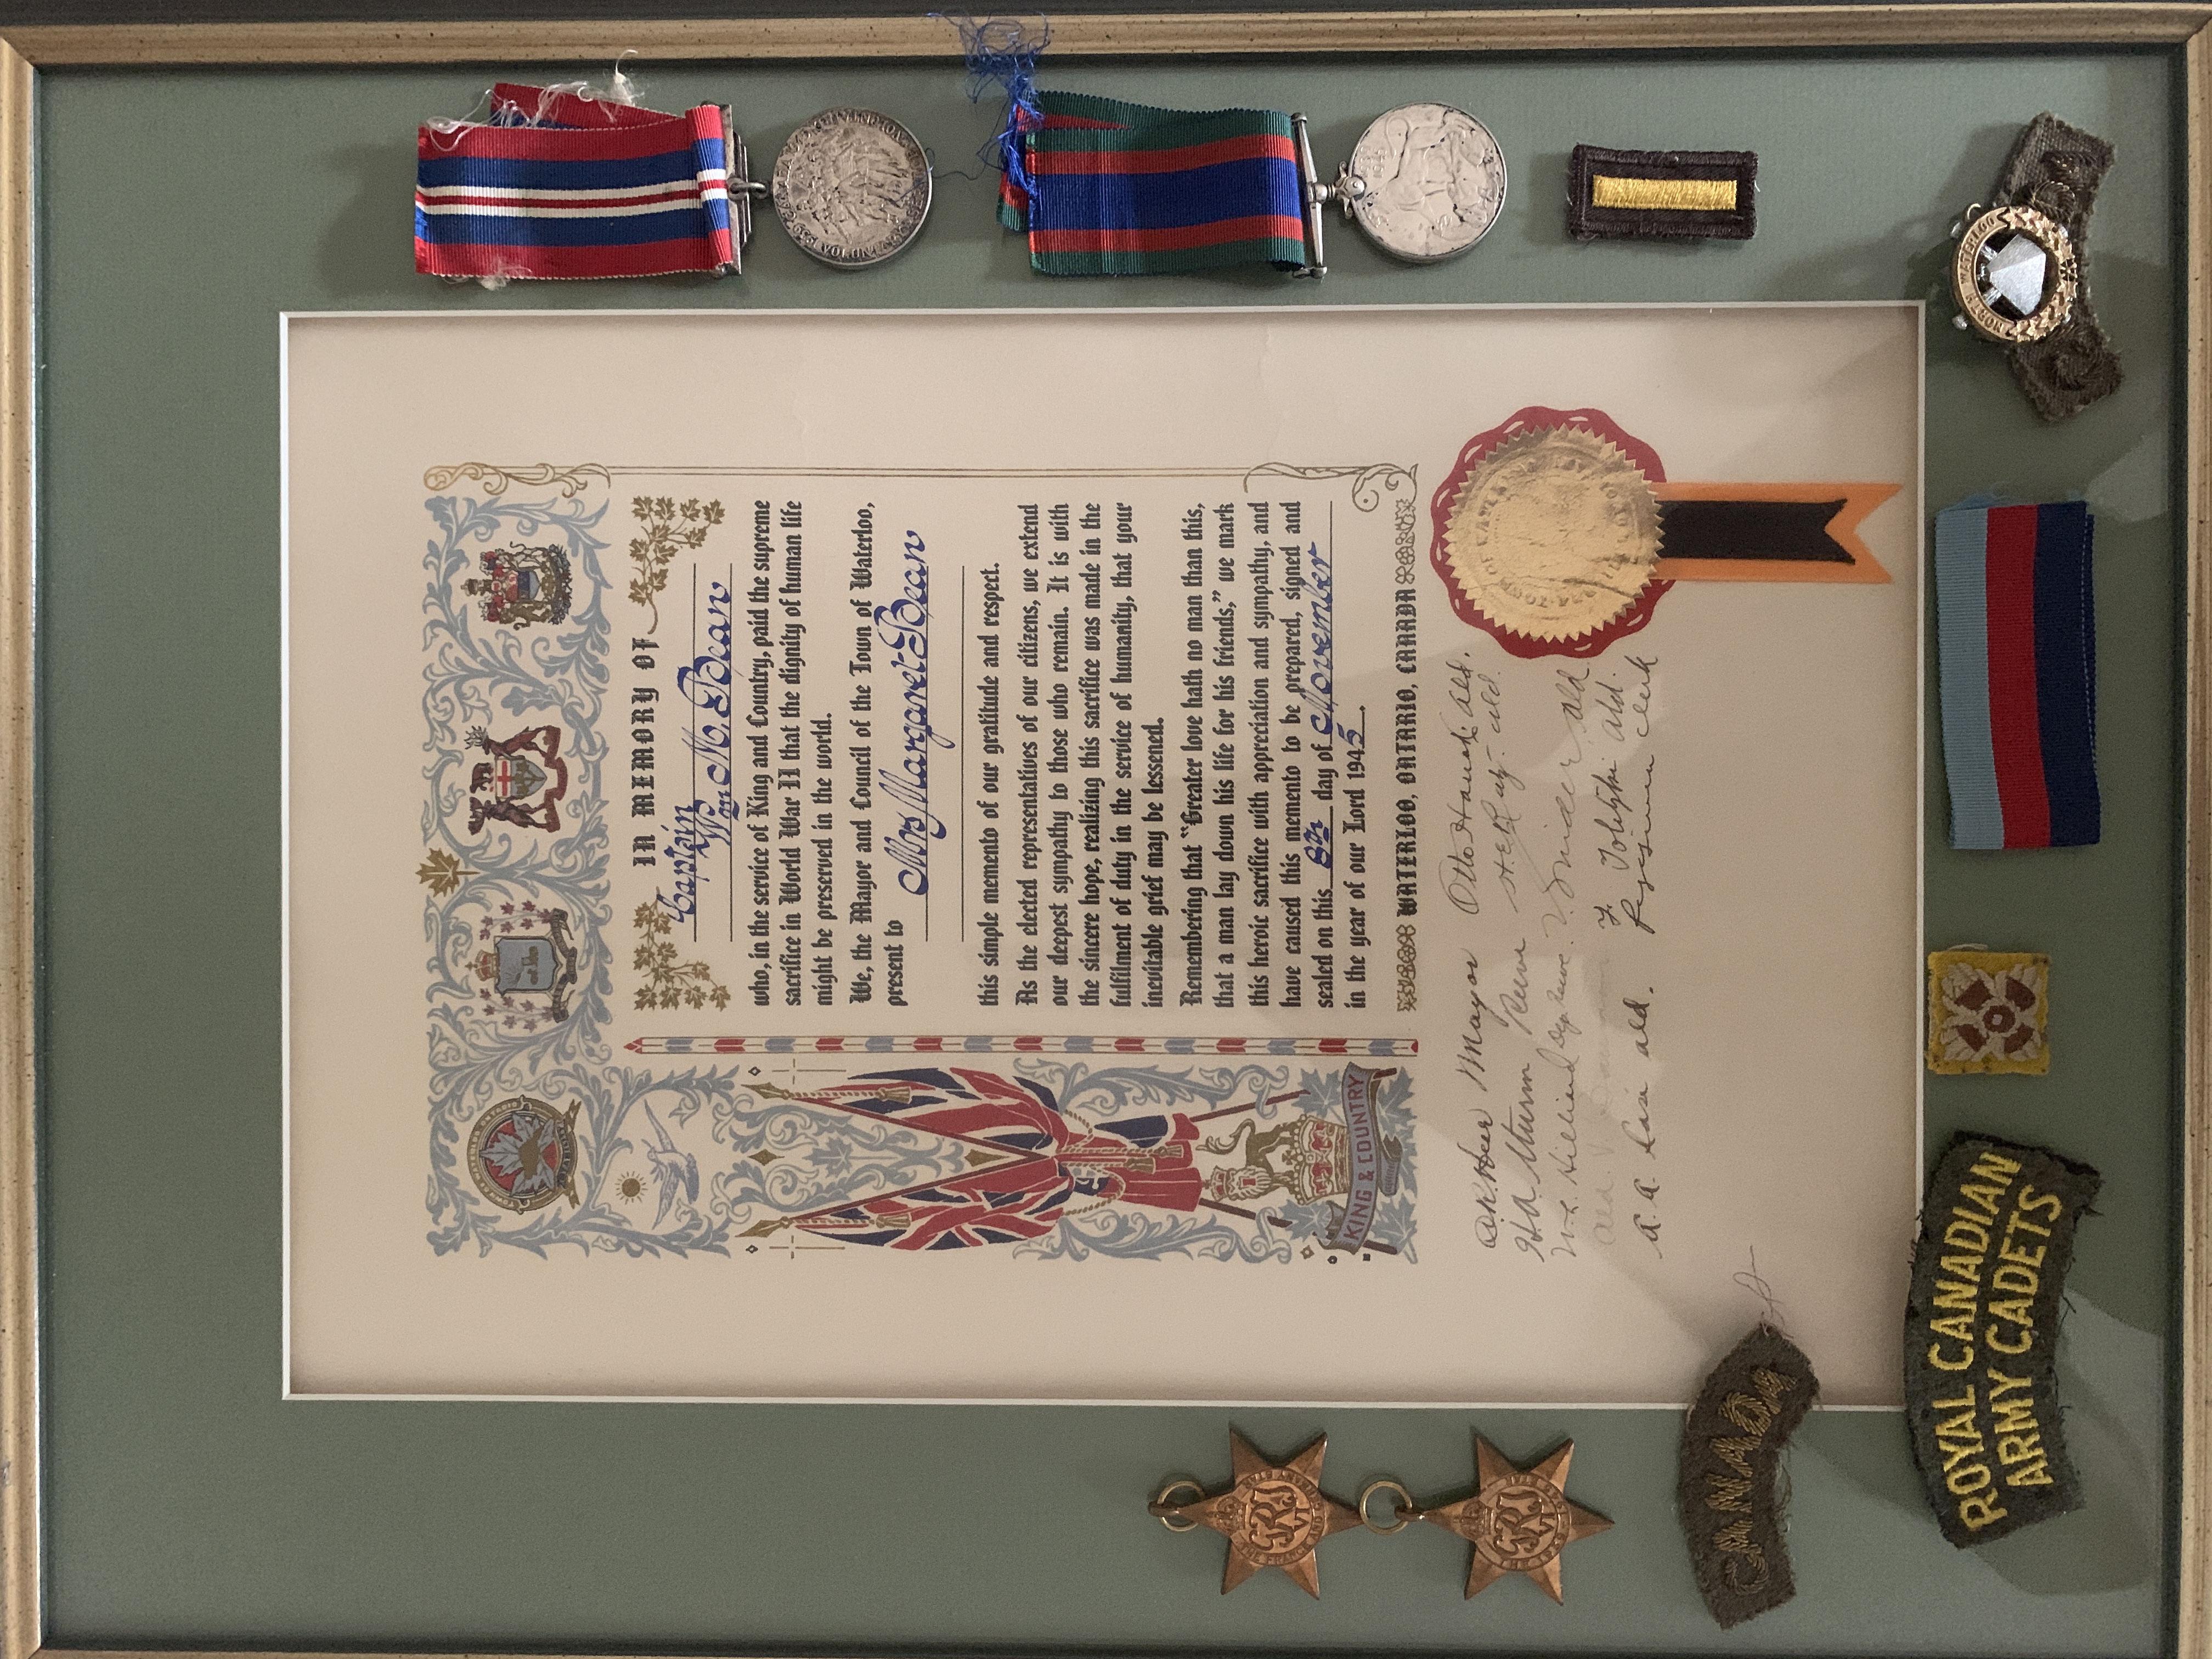 IN MEMORY OF
Captain
Wm M. Bean
who, in the service of King and Country, paid the supreme
sacrifice in World War II that the dignity of human life
might be preserved in the world.
We, the Mayor and Council of the Town of Waterloo,
present to
Mrs Margaret Bean
this simple memento of our gratitude and respect.
As the elected representatives of our citizens, we extend
our deepest sympathy to those who remain. It is with
the sincere hope, realizing this sacrifice was made in the
fulfilment of duty in the service of humanity, that your
inevitable grief may be lessened.
Remembering that “Greater love hath no man than this,
that a man lay down his life for his friends,” we mark
this heroic sacrifice with appreciation and sympathy, and
have caused this memento to be prepared, signed and
sealed on this 8th day of November
in the year of our Lord 1945.
WATERLOO, ONTARIO, CANADA
KING & COUNTRY
Mayor Otto Ald.
Reeve Ald.
Ald.
Ald.
A. A. Ald. Clerk
CANADA
ROYAL CANADIAN
ARMY CADETS
NORTH WATERLOO
GRI VI
THE FRANCE AND GERMANY STAR
GRI VI
THE 1939-1945 STAR